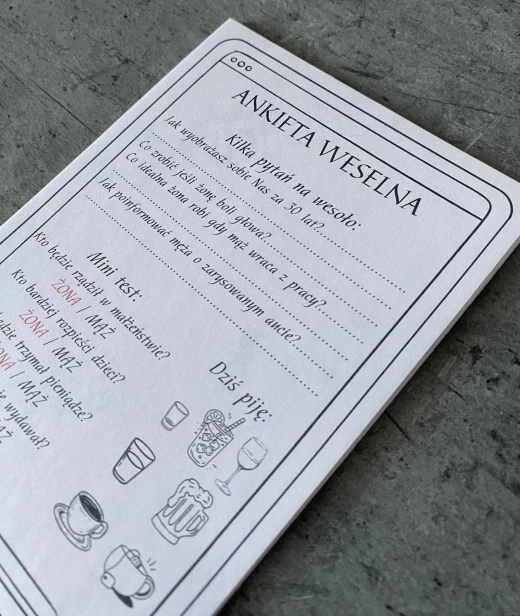 ANKIETA WESELNA
Kilka pytań na wesoło:
Jak wyobrażasz sobie Nas za 30 lat?
Co zrobić jeśli żonę boli głowa?
Co idealna żona robi gdy mąż wraca z pracy?
Jak poinformować męża o zarysowanym aucie?
Mini test:
Kto będzie rządził w małżeństwie?
ŻONA / MĄŻ
Kto bardziej rozpieści dzieci?
ŻONA / MĄŻ
trzymał pieniądze?
/ MĄŻ
wydawał?
Dziś piję: